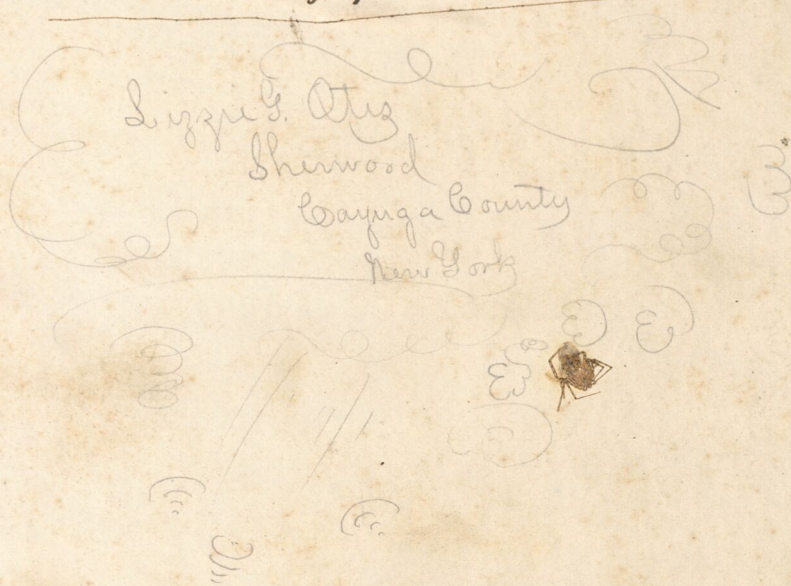 Lizzie G. Otis
Sherwood
Cayuga County
New York